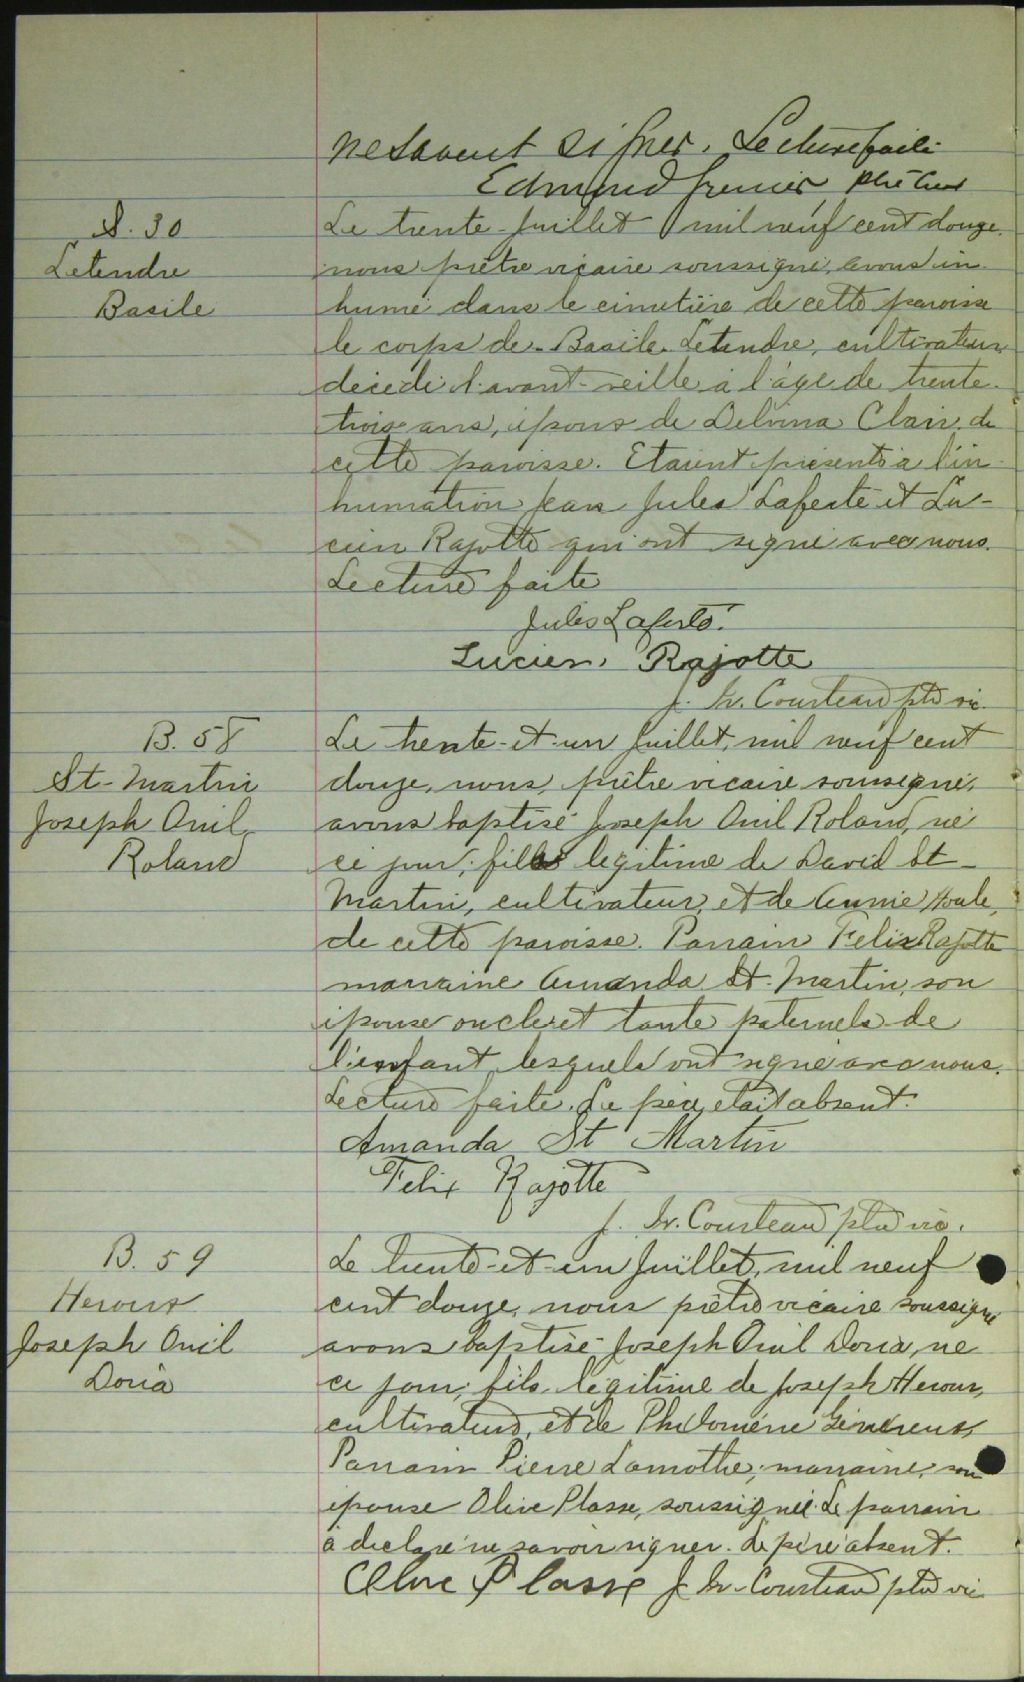 ne savent signer. Lecture faite
Edmond Grenier, ptre Curé
S. 30
Letendre
Basile
Le trente Juillet mil neuf cent douze
nous prêtre vicaire soussigné, avons in
humé dans le cimetière de cette paroisse
le corps de Basile Letendre, cultivateur
décédé l'avant-veille à l'âge de trente-
trois ans, époux de Delvina Clair, de
cette paroisse. Etaient présents à l'in
humation Jean Jules Laferté et Lu-
cien Rajotte qui ont signé avec nous.
Lecture faite
Jules Laferté.
Lucien Rajotte
J. Courteau ptre vic.
B. 58
St-Martin
Joseph Ovil
Roland
Le trente-et-un Juillet, mil neuf cent
douze, nous, prêtre vicaire soussigné,
avons baptisé Joseph Ovil Roland, né
ce jour, fils légitime de David St-
Martin, cultivateur, et de Annie Houle,
de cette paroisse. Parrain Felix Rajotte
marraine Amanda St-Martin, son
épouse oncle et tante paternels de
l'enfant lesquels ont signé avec nous.
Lecture faite. Le père était absent.
Amanda St Martin
Felix Rajotte
J. Courteau ptre vic.
B. 59
Heroux
Joseph Ovil
Doria
Le trente-et-un Juillet, mil neuf
cent douze, nous prêtre vicaire soussigné
avons baptisé Joseph Ovil Doria, né
ce jour, fils légitime de Joseph Heroux,
cultivateur, et de Philomène Généreux
Parrain Pierre Lamothe, marraine, son
épouse Olive Plasse, soussignée. Le parrain
a déclaré ne savoir signer. Le père absent.
Olive Plasse J. Courteau ptre vic